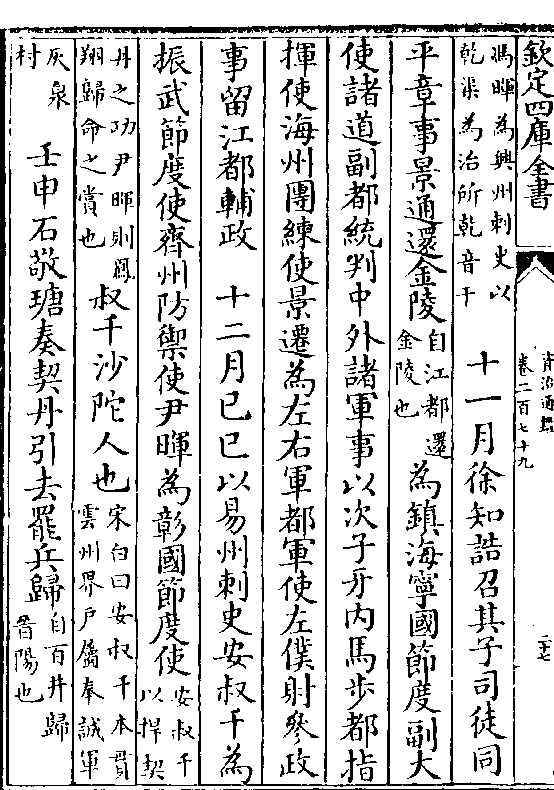 欽定四庫全書
資治通鑑
卷二百七十九
二十七
馮暉為興州刺史以
乾渠為治所乾音干
十一月徐知誥召其子司徒同
平章事景通還金陵
自江都還
金陵也
為鎮海寧國節度副大
使諸道副都統判中外諸軍事以次子牙内馬步都指
揮使海州團練使景遷為左右軍都軍使左僕射參政
事留江都輔政 十二月己巳以易州刺史安叔千為
振武節度使齊州防禦使尹暉為彰國節度使
安叔千
以捍契
丹之功尹暉則鳳
翔歸命之賞也
叔千沙陀人也
宋白曰安叔千本貫
雲州界户屬奉誠軍
灰泉
村
壬申石敬瑭奏契丹引去罷兵歸
自百井歸
晉陽也